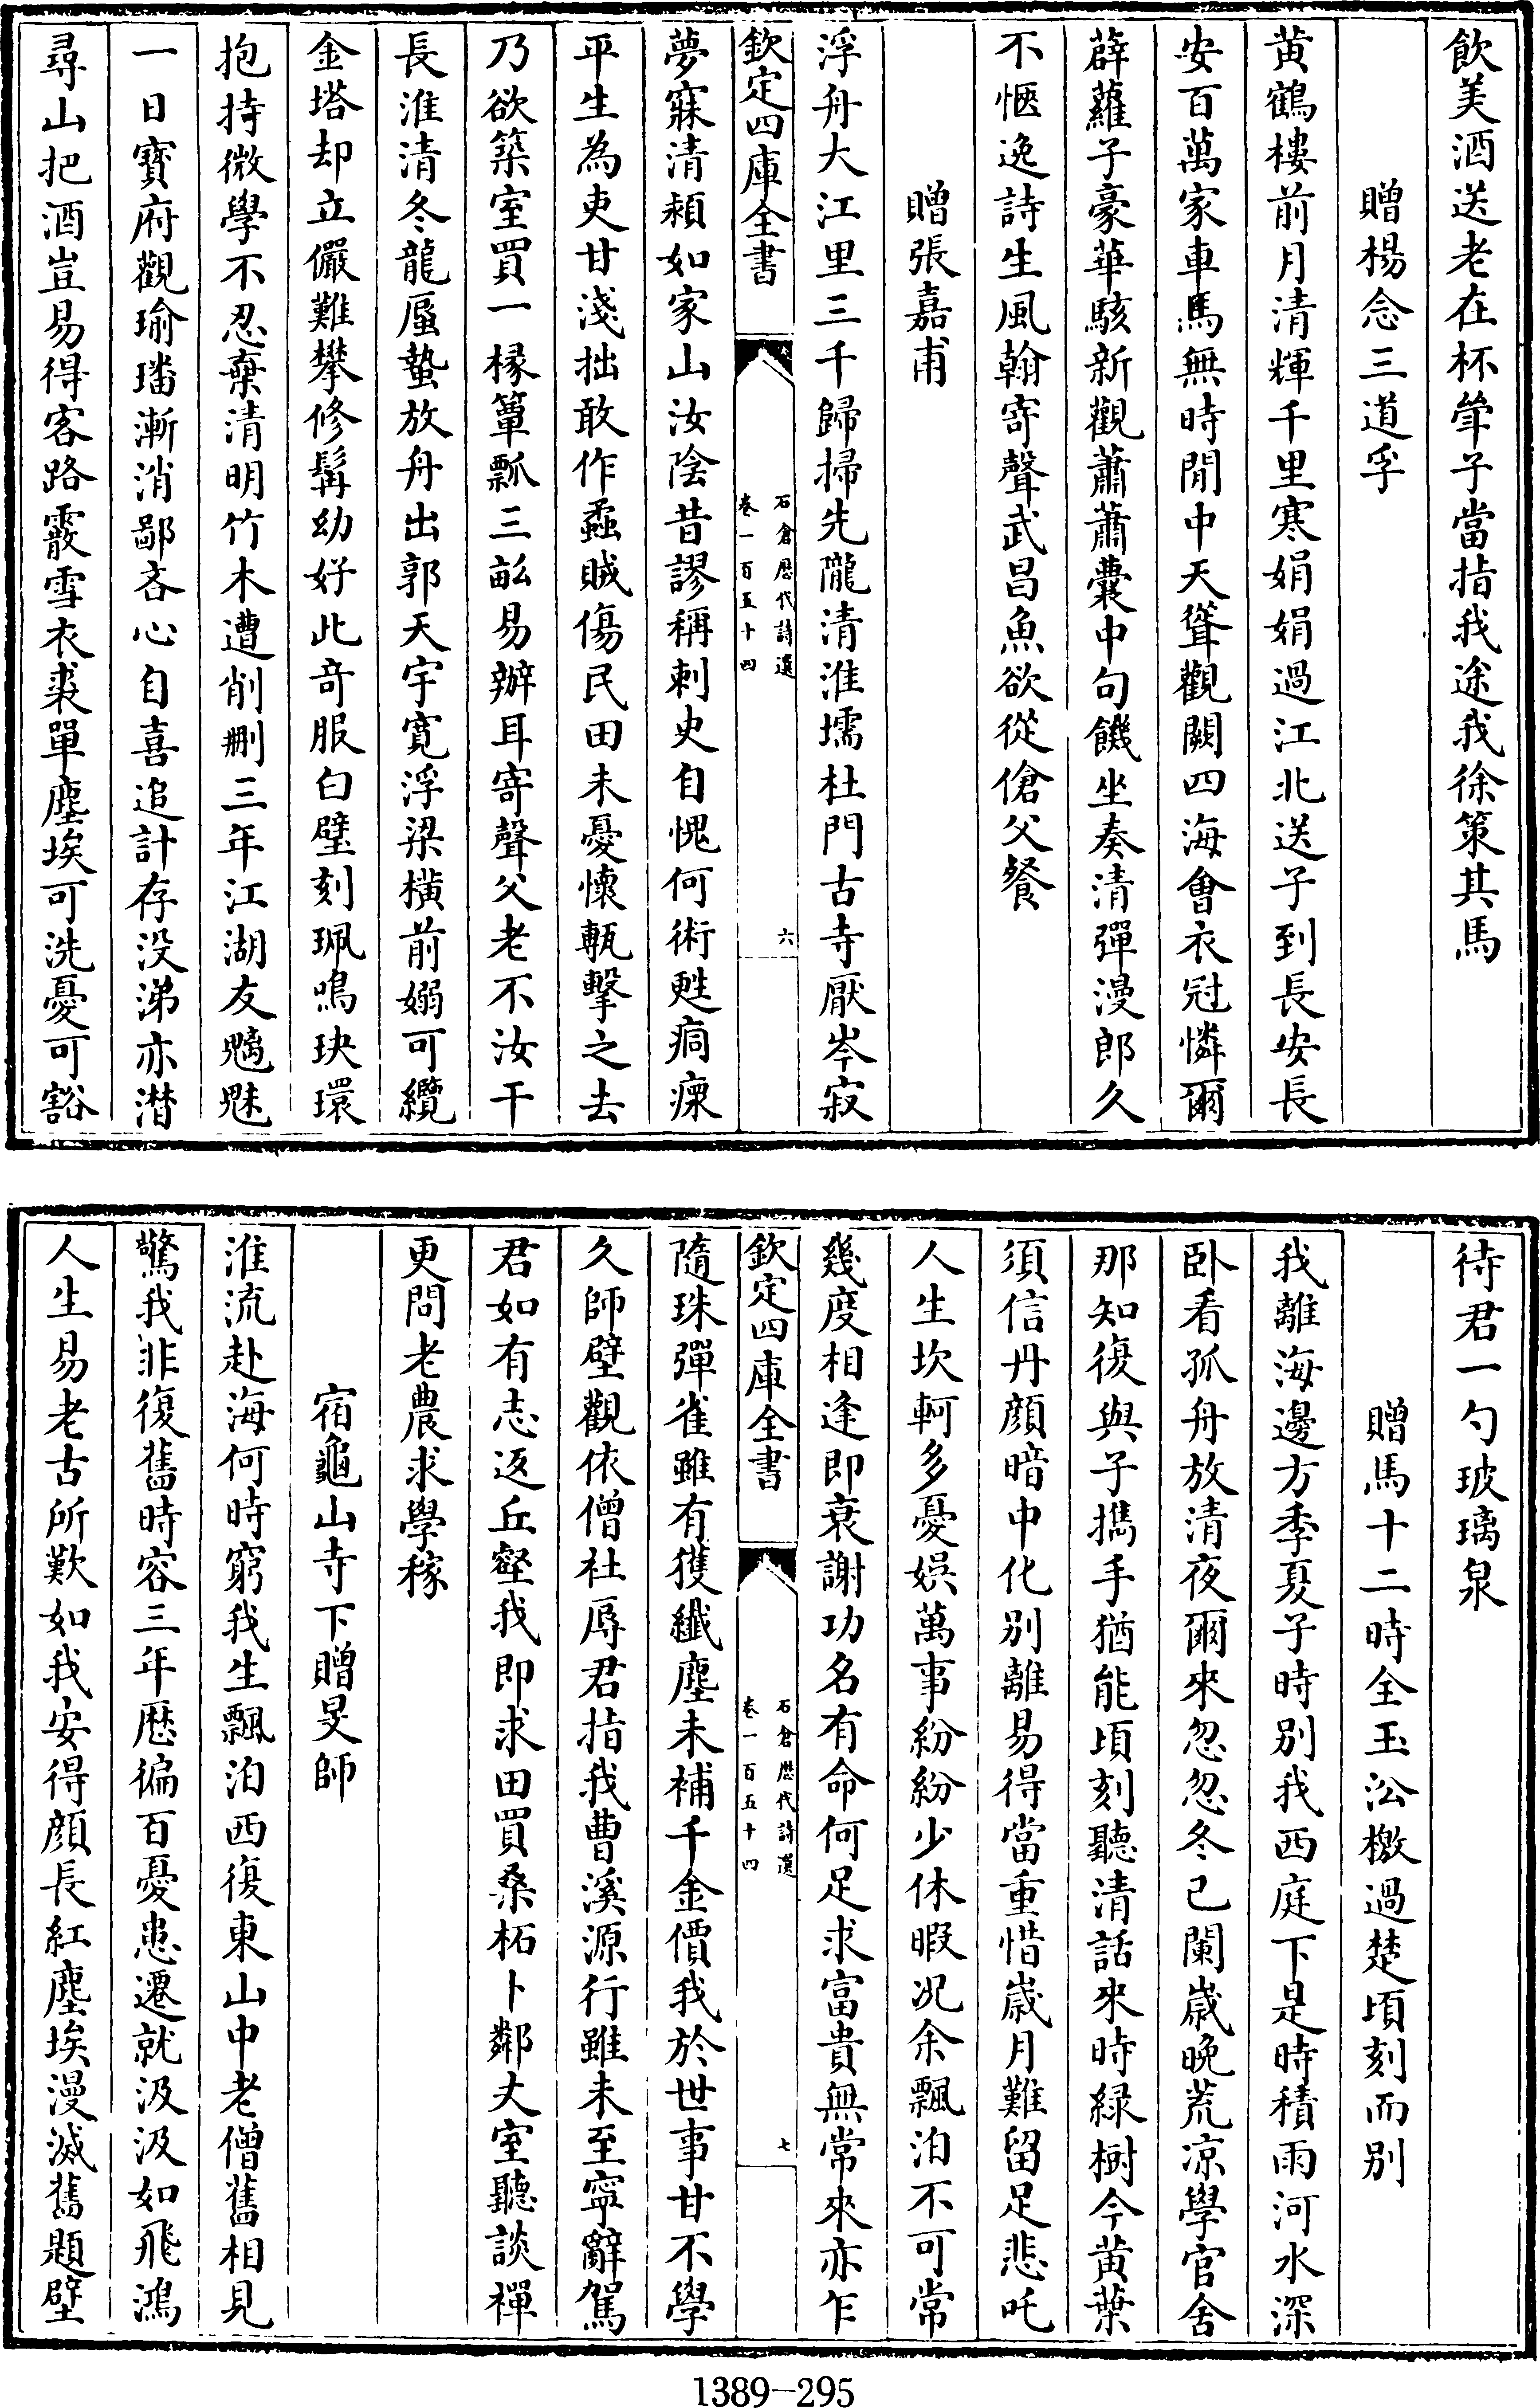 飲美酒送老在杯犖子當指我途我徐策其馬
贈楊念三道孚
黄鶴樓前月清輝千里寒娟娟過江北送子到長安長
安百萬家車馬無時閒中天聳觀闕四海會衣冠憐爾
薜蘿子豪華駭新觀蕭蕭囊中句饑坐奏清彈漫郎久
不愜逸詩生風翰寄聲武昌魚欲從傖父餐
贈張嘉甫
浮舟大江里三千歸掃先隴清淮壖杜門古寺厭岑寂
欽定四庫全書
石倉歴代詩選
卷一百五十四
六
夢寐清潁如家山汝陰昔謬稱刺史自愧何術甦痌瘝
平生為吏甘淺拙敢作蟊賊傷民田未憂懷甎擊之去
乃欲築室買一椽簞瓢三畝易辦耳寄聲父老不汝干
長淮清冬龍蜃蟄放舟出郭天宇寛浮梁横前嫋可纜
金塔却立儼難攀修髯幼好此奇服白璧刻珮鳴玦環
抱持微學不忍棄清明竹木遭削刪三年江湖友魑魅
一日寶府觀瑜璠漸消鄙吝心自喜追計存没涕亦潸
尋山把酒豈易得客路霰雪衣裘單塵埃可洗憂可豁
待君一勺玻璃泉
贈馬十二時全玉公檄過楚頃刻而别
我離海邊方季夏子時别我西庭下是時積雨河水深
卧看孤舟放清夜爾來忽忽冬已闌歲晩荒凉學官舍
那知復與子攜手猶能頃刻聽清話來時緑樹今黄葉
須信丹顔暗中化别離易得當重惜歲月難留足悲吒
人生坎軻多憂娱萬事紛紛少休暇况余飄泊不可常
幾度相逢即衰謝功名有命何足求富貴無常來亦乍
欽定四庫全書
石倉歴代詩選
卷一百五十四
七
隨珠彈雀雖有獲纎塵未補千金價我於世事甘不學
久師壁觀依僧社辱君指我曹溪源行雖未至寧辭駕
君如有志返丘壑我即求田買桑柘卜鄰丈室聽談禪
更問老農求學稼
宿龜山寺下贈旻師
淮流赴海何時窮我生飄泊西復東山中老僧舊相見
驚我非復舊時容三年歴徧百憂患遷就汲汲如飛鴻
人生易老古所歎如我安得顔長紅塵埃漫滅舊題壁
1389-295